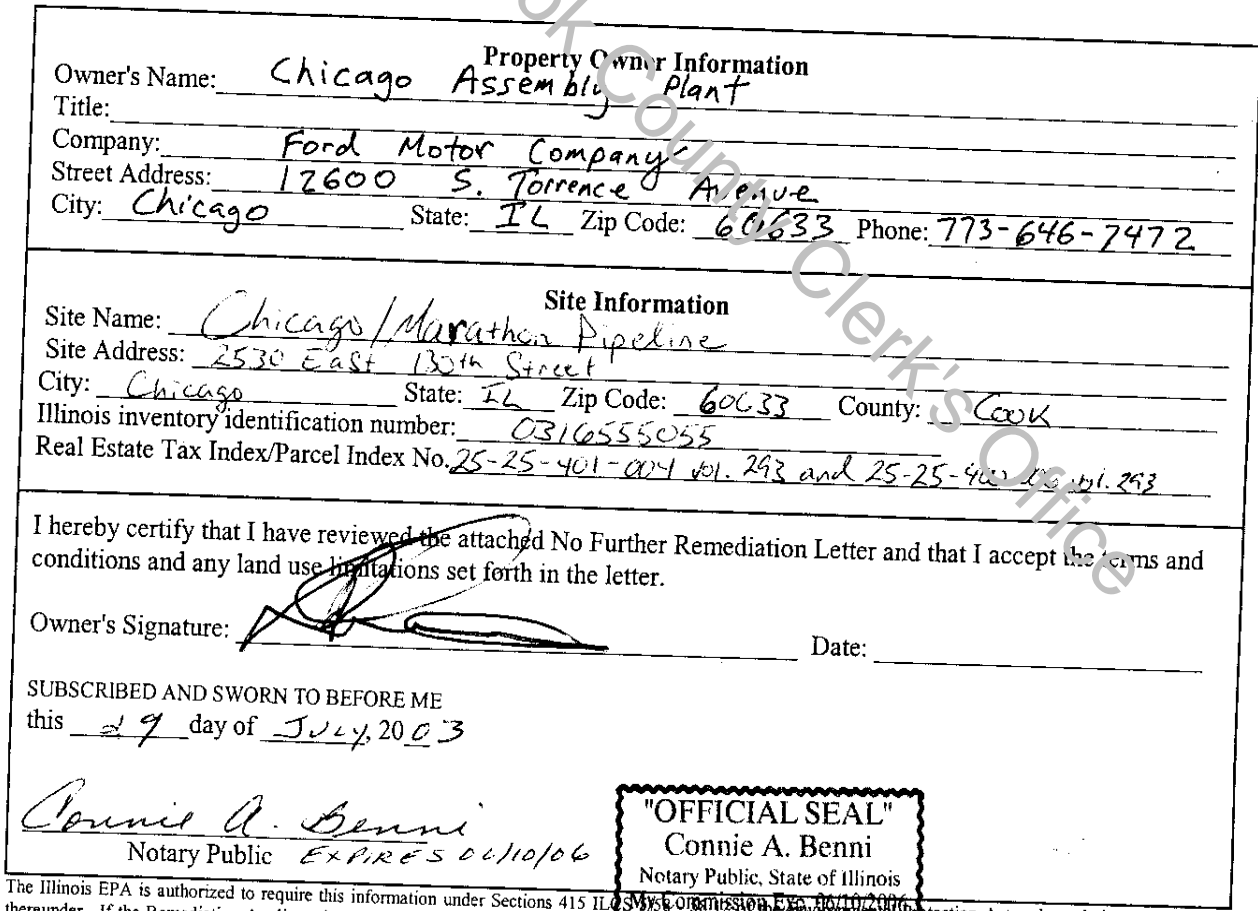 Property Owner Information
Owner's Name: Chicago Assembly Plant
Title:
Company: Ford Motor Company
Street Address: 12600 S. Torrence Avenue
City: Chicago State: IL Zip Code: 60633 Phone: 773-646-7472
Site Information
Site Name: Chicago/Marathon Pipeline
Site Address: 2530 East 130th Street
City: Chicago State: IL Zip Code: 60633 County: Cook
Illinois inventory identification number: 0316555055
Real Estate Tax Index/Parcel Index No. 25-25-401-004 vol. 293 and 25-25-400 vol. 293
I hereby certify that I have reviewed the attached No Further Remediation Letter and that I accept the terms and
conditions and any land use limitations set forth in the letter.
Owner's Signature: Date:
SUBSCRIBED AND SWORN TO BEFORE ME
this 29 day of July, 2003
Connie A. Benni
Notary Public EXPIRES 06/10/06
"OFFICIAL SEAL"
Connie A. Benni
Notary Public, State of Illinois
My Commission Exp. 06/10/2006
The Illinois EPA is authorized to require this information under Sections 415
County Clerk's Office